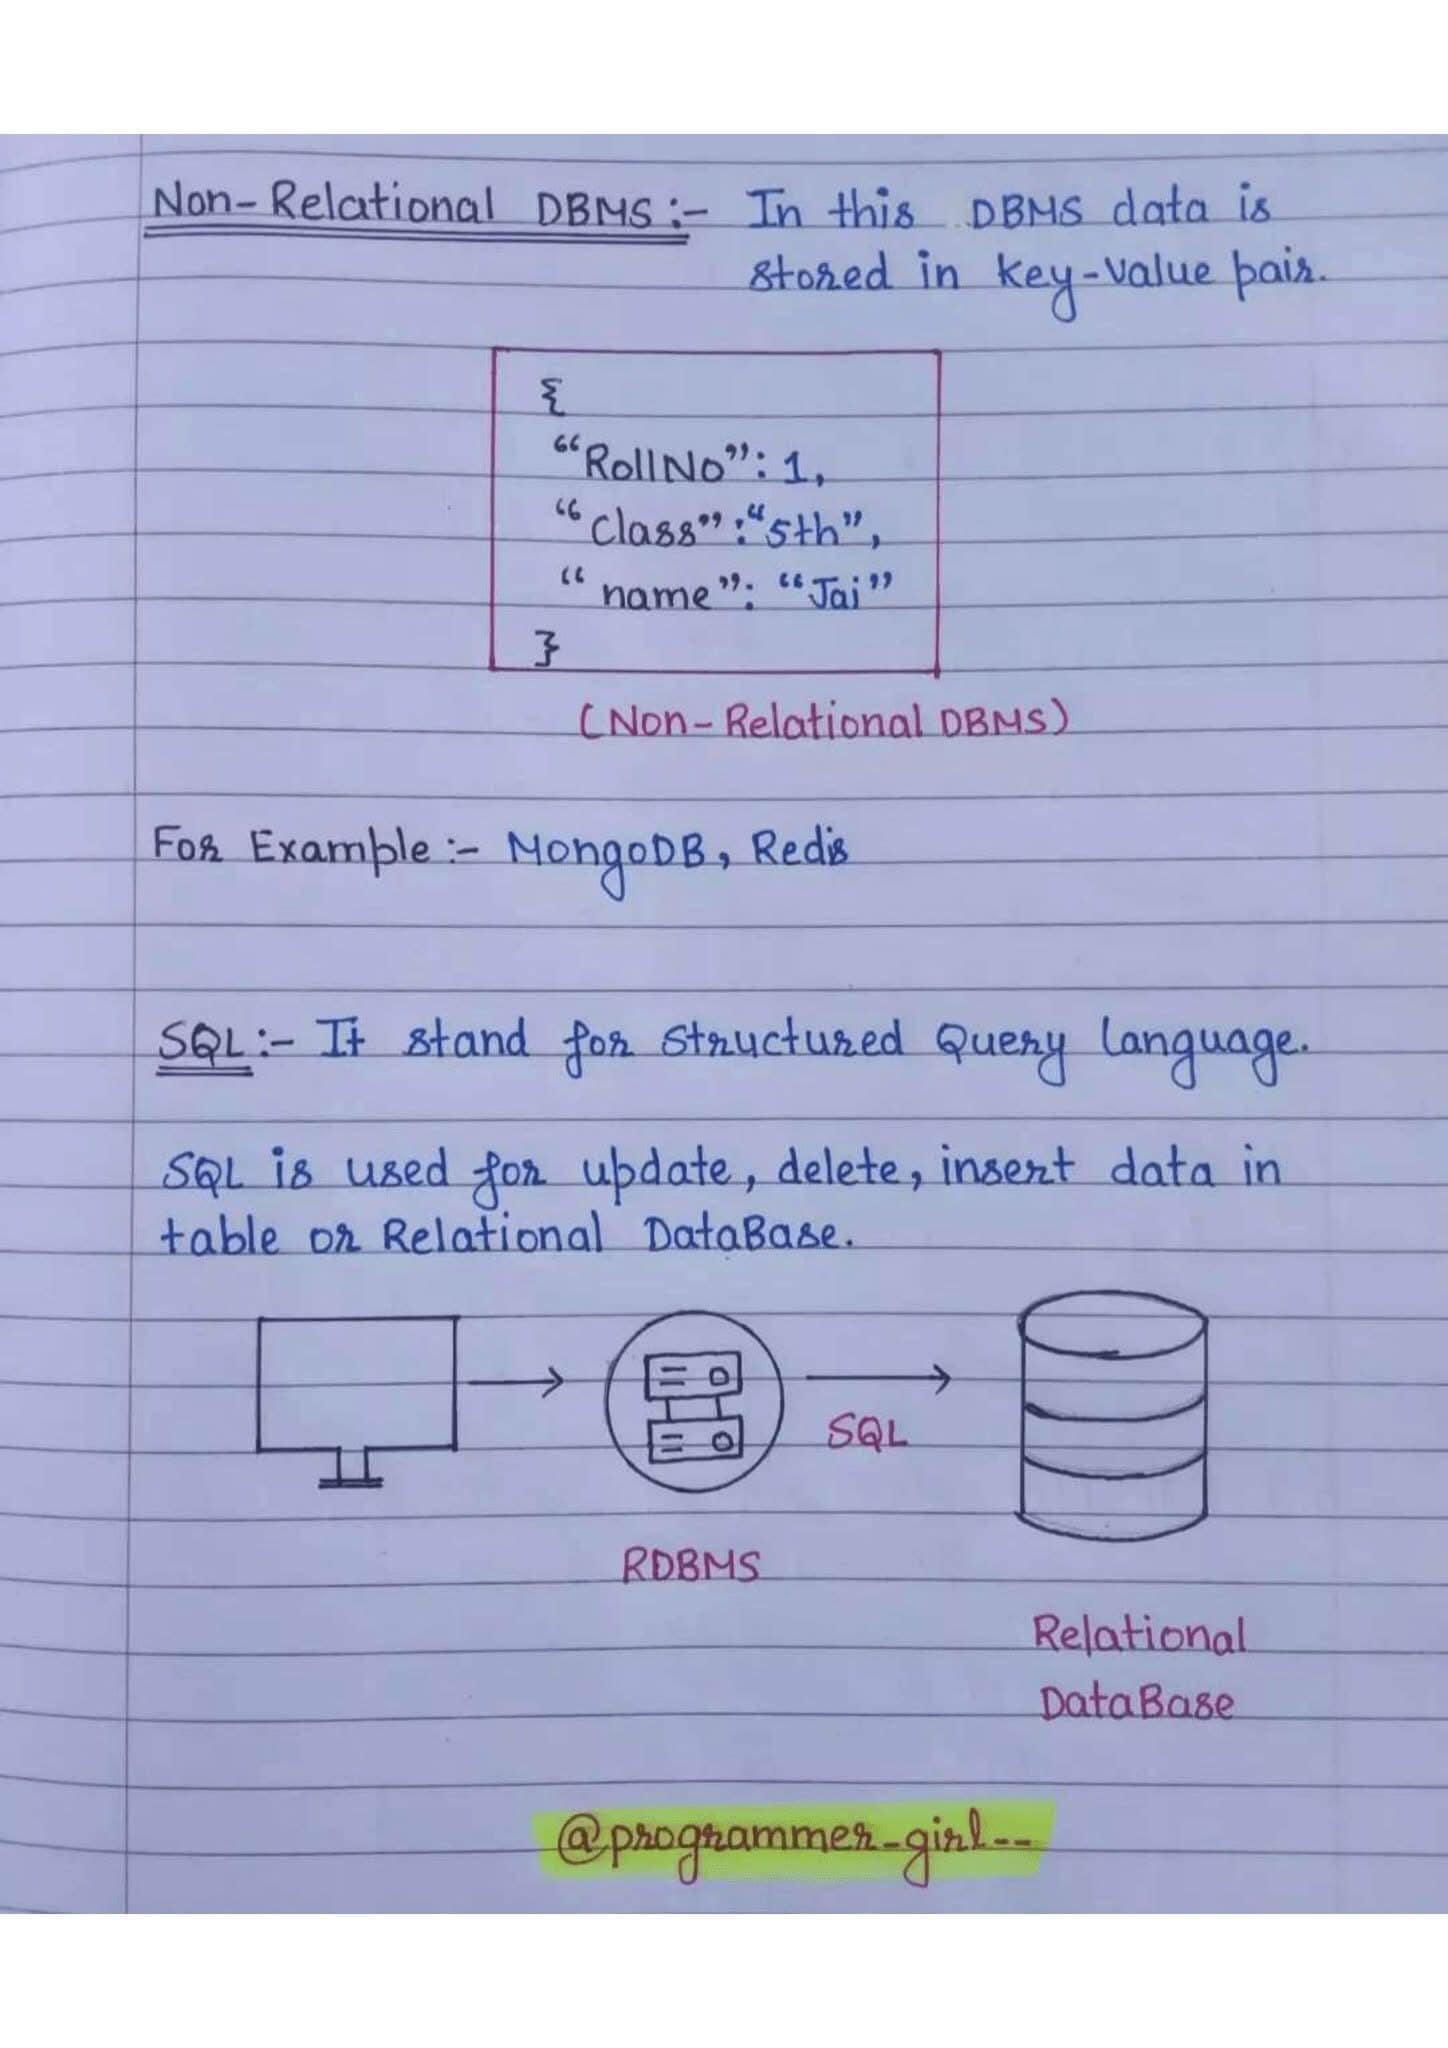 Non-Relational DBMS:- In this DBMS data is
stored in key-value pair.
{
"RollNo": 1,
"Class":"5th",
"name": "Jai"
}
(Non-Relational DBMS)
For Example:- MongoDB, Redis
SQL:- It stand for Structured Query Language.
SQL is used for update, delete, insert data in
table or Relational DataBase.
SQL
RDBMS
Relational
DataBase
@programmer_girl--